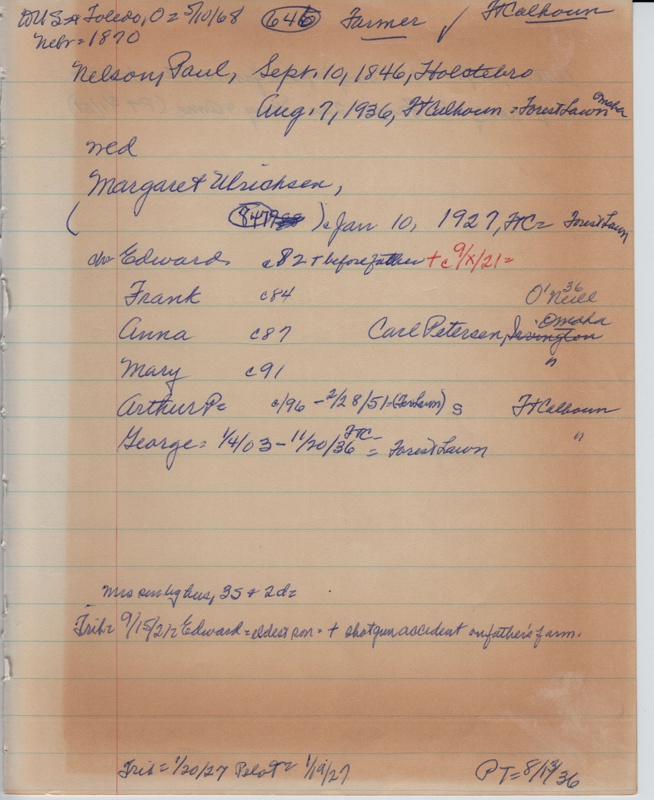 to U.S.= Toledo, O = 5/10/68 646 Farmer ✓ FtCalhoun
Nebr = 1870
Nelson, Paul, Sept. 10, 1846, Holstebro
Aug. 7, 1936, FtCalhoun = Forest Lawn Omaha
med
Margaret Ulrichsen,
( 847 ) = Jan 10, 1927, FtC = Forest Lawn
ch= Edward c82 + before father + c 9/x/21=
Frank c84 O'Neill 36
Anna c87 Carl Petersen, Irvington Omaha
Mary c91 "
Arthur P= c/96 - 2/28/51= (ForLawn) s FtCalhoun
George = 1/4/03 - 11/20/36 FtC = Forest Lawn "
Mrs surv by hus, 3s + 2d=
Trib= 9/15/21= Edward = eldest son = + shotgun accident on father's farm.
Trib = 1/20/27 Pilot = 1/19/27 PT = 8/13/36